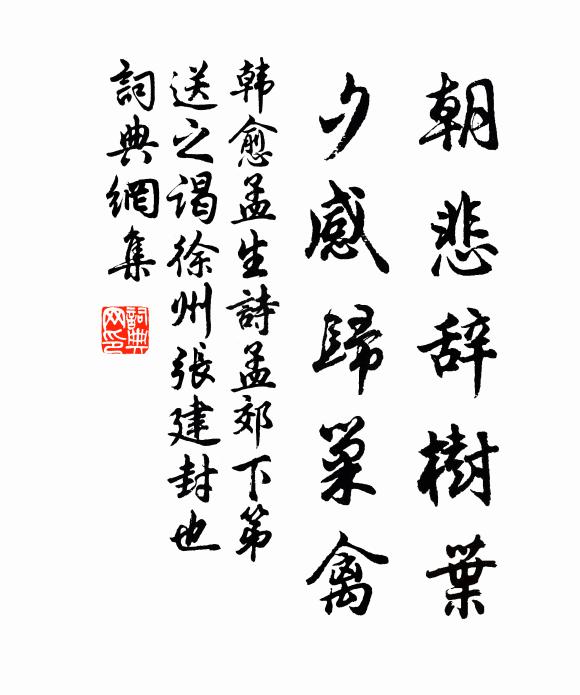 朝悲辞樹葉
夕感歸巢禽
韩愈孟生詩孟郊下第
送之谒徐州張建封也
詞典網集
詞典
网印